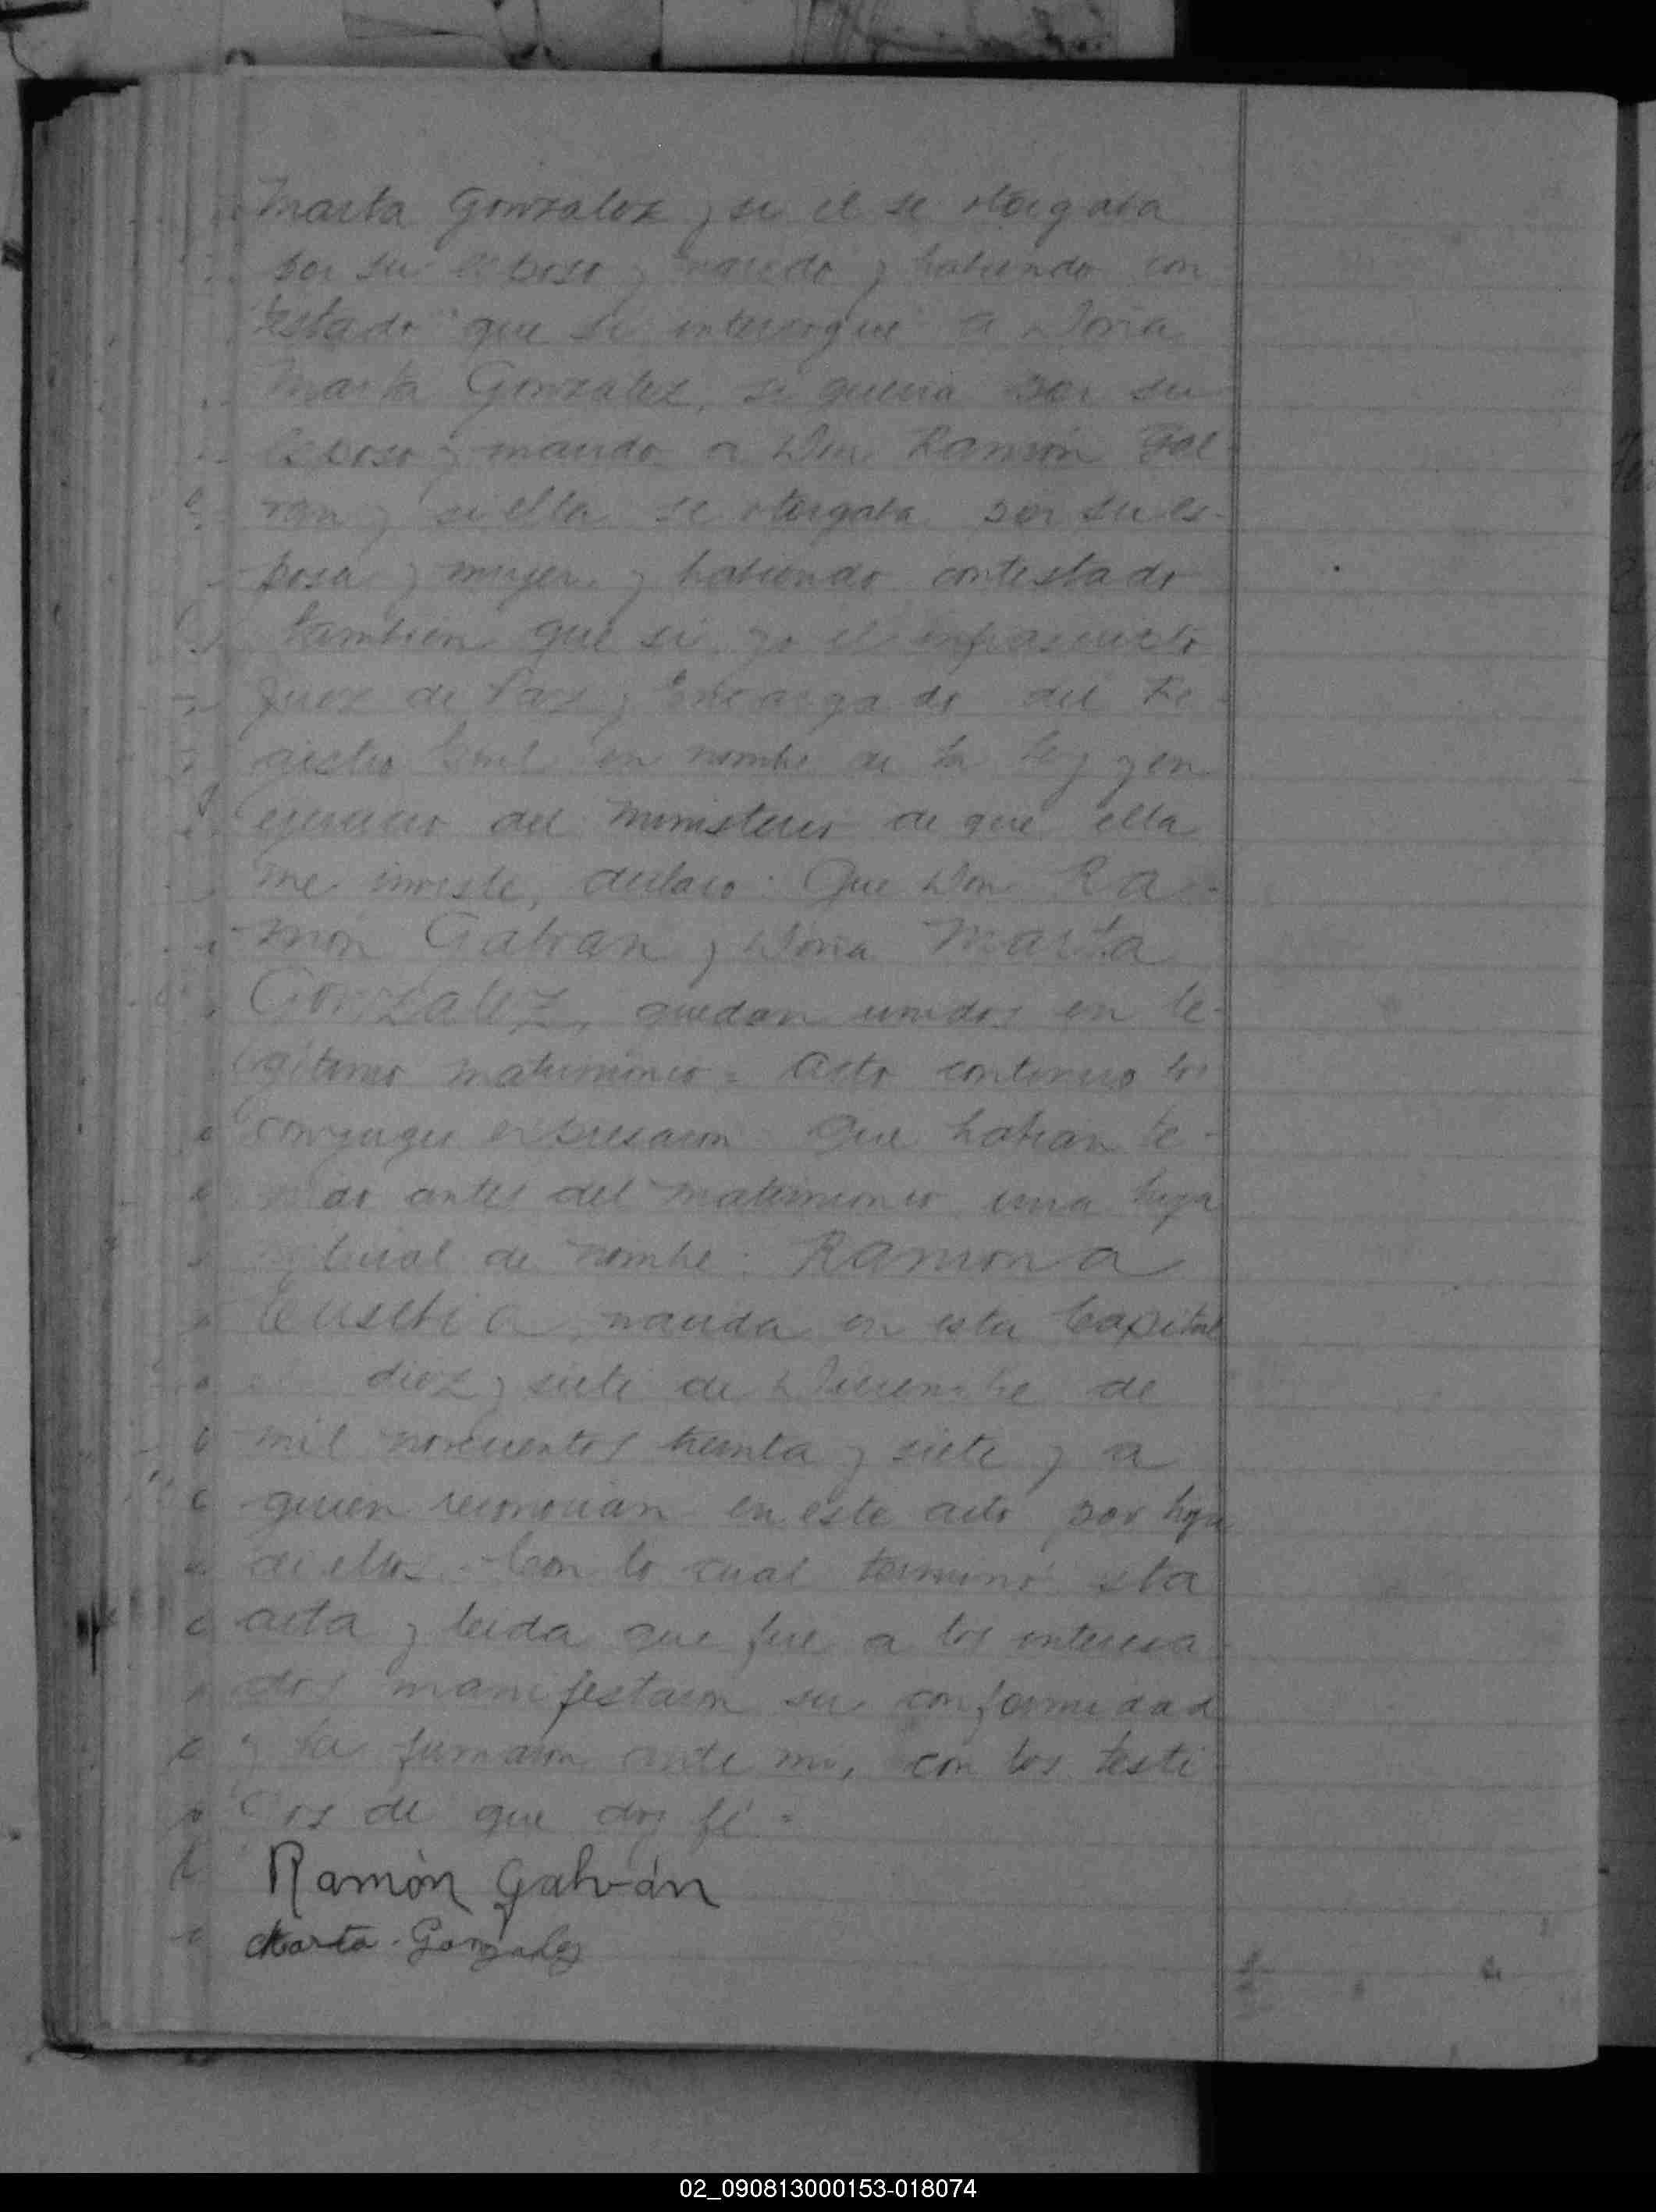 Marta Gonzalez y si él se otorgaba
por su esposo y marido y habiendo con
testado que si interrogué a Doña
Marta Gonzalez, si queria por su
esposo y marido a Don Ramón Gal-
van y si ella se otorgaba por su es-
posa y mujer y habiendo contestado
tambien que si yo el infrascrito
Juez de Paz y Encargado del Re-
gistro Civil en nombre de la ley y en
ejercicio del ministerio de que ella
me inviste, declaro: Que Don Ra-
món Galvan y Doña Marta
Gonzalez, quedan unidos en le-
gitimo matrimonio = Acto continuo los
conyuges expresaron que habian te-
nido antes del matrimonio una hija
natural de nombre: Ramona
Eusebia, nacida en esta Capital
el diez y siete de Diciembre de
mil novecientos treinta y siete y a
quien reconocian en este acto por hija
de ellos.- Con lo cual terminó esta
acta y leida que fue a los interesa
dos manifestaron su conformidad
y la firmaron ante mi, con los testi
gos de que doy fé =
Ramón Galván
Marta Gonzalez
02_090813000153-018074